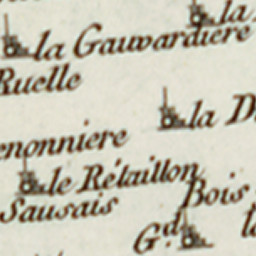 la
la Gauvardiere
Ruelle
la
le Rétaillon
Sausais
Bois
G.d